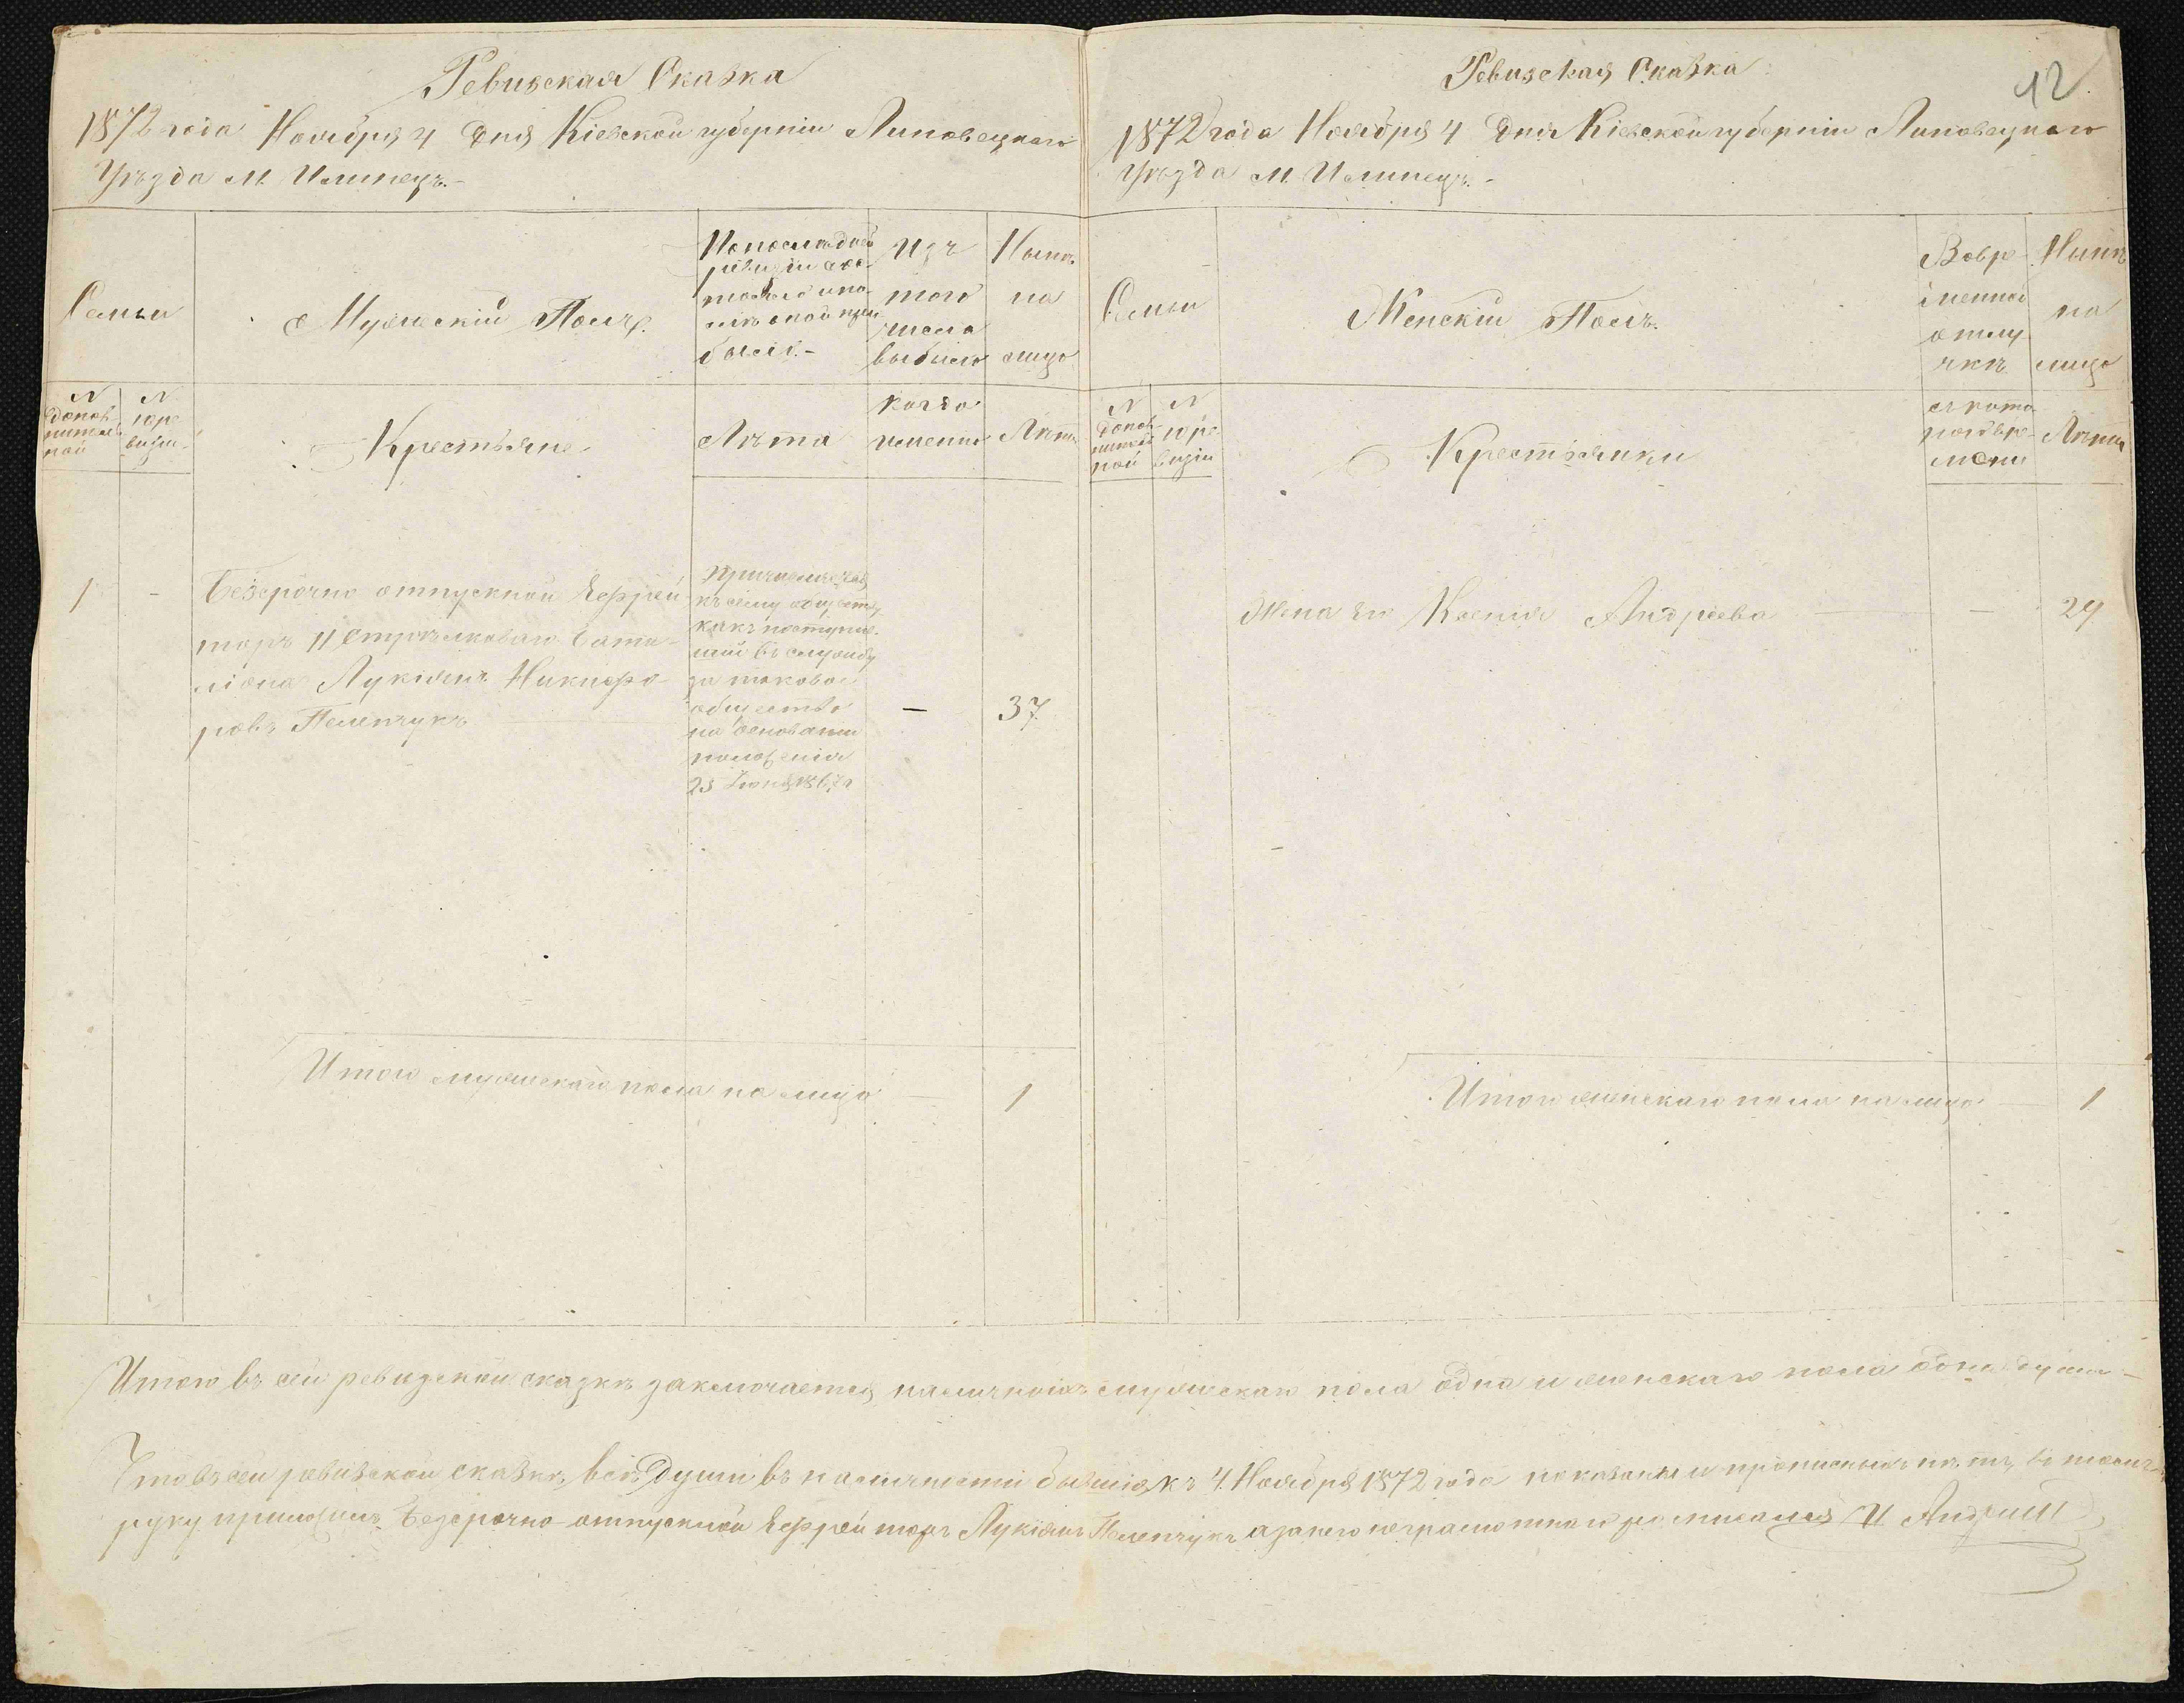 Ревизская Сказка
1872 года Ноября 4 дня Кіевской губерніи Липовецкаго
Уѣзда М. Илинецъ.-
Семьи
Мужескій Полъ.
По последней
ревизіи сос-
тояло и по-
слѣ оной при
было.-
Изъ
того
числа
выбыло
Нынѣ
на
лицо
№
допол
нитель
ной
№
10 ре
визіи
Крестьяне
Лѣта
когда
именно
Лѣта
1
-
Безсрочно отпускной Ефрей
торъ 11 Стрѣлковаго Бата-
ліона Лукіянъ Никифо-
ровъ Пеленчукъ
къ сему обществу
какъ поступив-
шій въ службу
за таковое
общество
на основаніи
положенія
25 Іюня 1867 г
-
37
Итого мужескаго пола на лицо - 1
12
Ревизская Сказка
1872 года Ноября 4 дня Кіевской губерніи Липовецкаго
Уѣзда М. Илинецъ.-
Семьи
Женскій Полъ.
Во вре
менной
отлу
чкѣ
Нынѣ
на
лицо
№
допол
нитель
ной
№
10 ре
визіи
Крестьянки
съ кото
раго вре
мени
Лѣта
Жена его Ксенія Андреева - 29
Итого женскаго пола на лицо - 1
Итого въ сей ревизской сказкѣ заключается наличныхъ мужескаго пола одна и женскаго пола одна душа -
Что въ сей ревизской сказкѣ, всѣ души въ наличности бывшія къ 4 Ноября 1872 года показаны и прописныхъ нѣтъ, въ томъ
руку приложилъ Безсрочно-отпускной Ефрейторъ Лукіянъ Пеленчукъ а за него неграмотнаго росписался И Андрій